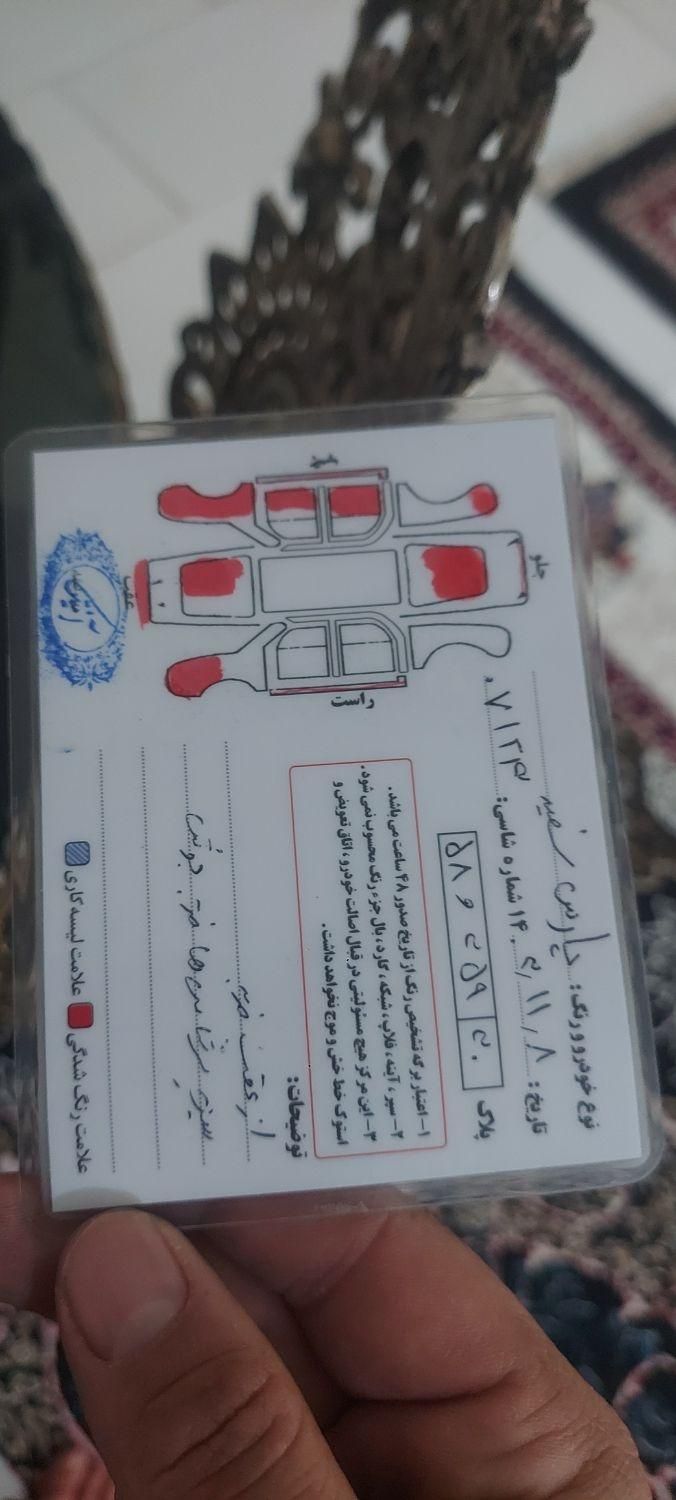 نوع خودرو و رنگ: پارس سفید
تاریخ: ۱۴۰۲/۱۱/۸ شماره شاسی: ۰۷۱۲۴
پلاک
۵۸ و ۲۵۹ ۲۰
۱- اعتبار برگه تشخیص رنگ از تاریخ صدور ۴۸ ساعت می باشد.
۲- سپر، آینه، قلاپ، شبکه، گارد، بال جزء رنگ محسوب نمی شود.
۳- این مرکز هیچ مسئولیتی در قبال اصالت خودرو، اتاق تعویض و
استوک خط خش و موج نخواهد داشت.
توضیحات:
از عقب ضربه
علامت رنگ شدگی
علامت لیسه کاری
جلو
عقب
راست